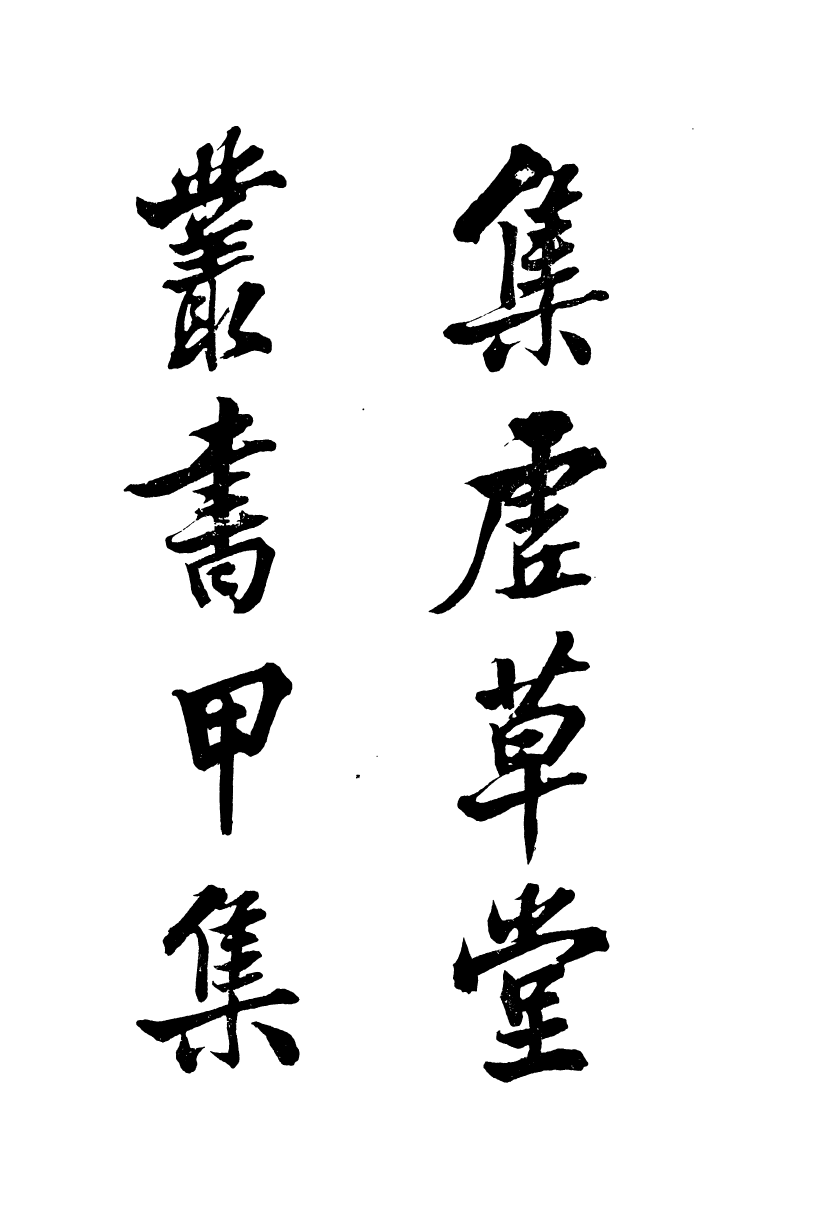 集虛草堂
叢書甲集